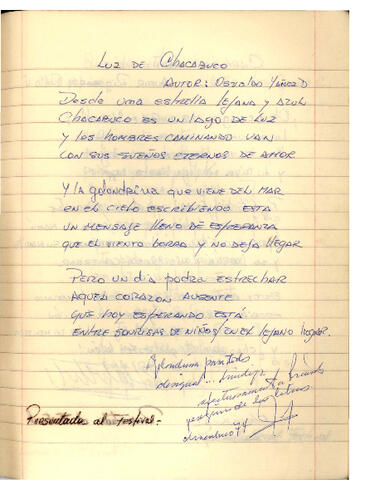 LUZ DE CHACABUCO
AUTOR: OSVALDO YAÑEZ D
DESDE UMA ESTRELLA LEJANA Y AZUL
CHACABUCO ES UN LAGO DE LUZ
Y LOS HOMBRES CAMINANDO VAN
CON SUS SUEÑOS ETERNOS DE AMOR
Y LA GOLONDRINA QUE VIENE DEL MAR
EN EL CIELO ESCRIBIENDO ESTA
UN MENSAJE LLENO DE ESPERANZA
QUE EL VIENTO BORRA Y NO DEJA LLEGAR
PERO UN DIA PODRA ESTRECHAR
AQUEL CORAZON AUSENTE
QUE HOY ESPERANDO ESTÁ
ENTRE SONRISAS DE NIÑOS/EN EL LEJANO HOGAR.
para todos
afectuosamente
Presentada al Festival.-